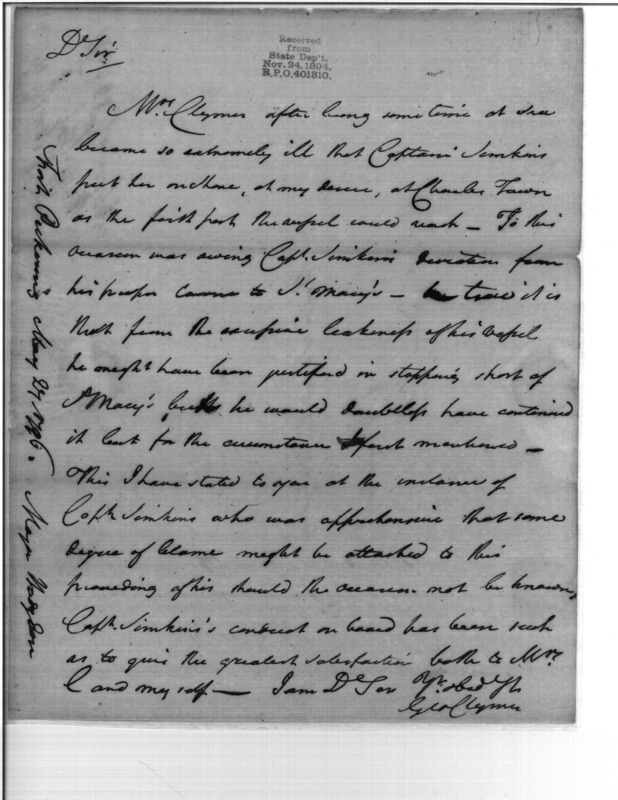 Received
from
State Dep't.
Nov. 24. 1894.
R.P.O. 401310.
Dr Sir
Mrs Clymer after being some time at sea
became so extremely ill that Captain Simkins
put her on shore, at my desire, at Charles Town
as the first port the vessel could reach – To this
occasion was owing Capt. Simkins's deviation from
his proper course to St. Mary's – true it is
that from the excessive leakeness of his vessel
he might have been justified in stopping short of
St Mary's but he would doubtless have continued
it but for the circumstance first mentioned –
This I have stated to you at the instance of
Capt Simkins who was apprehensive that some
degree of blame might be attached to this
proceeding of his should the occasion not be known,
Capt. Simkins's conduct on board has been such
as to give the greatest satisfaction both to Mrs
C and myself – I am Dr Sir Yr. obed
Geo Clymer
Fort Pickering May 27, 1796. Major